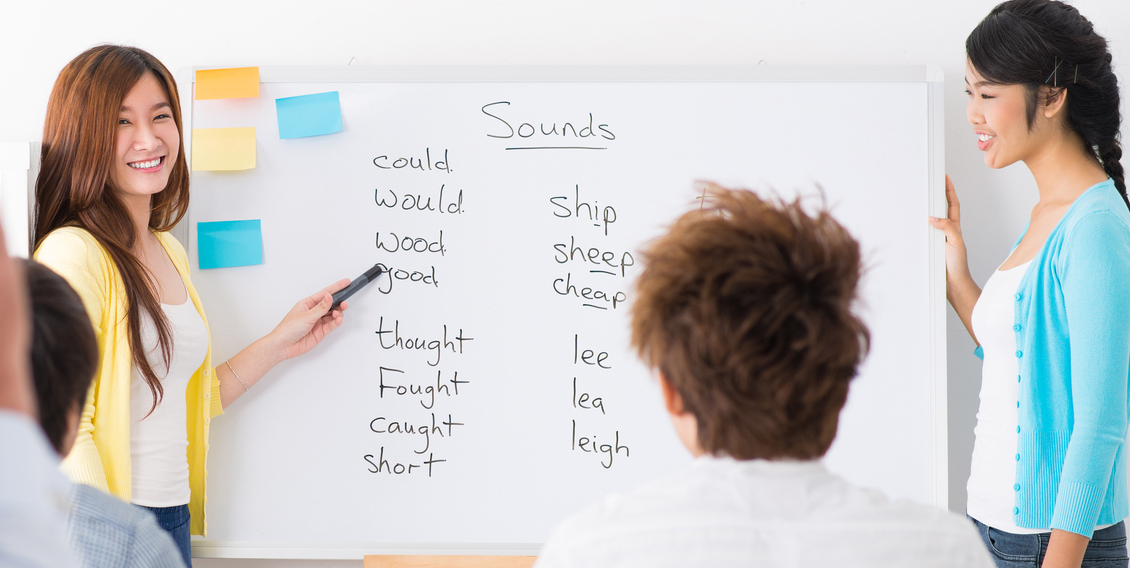 Sounds
could.
would.
wood.
good
thought
Fought
caught
short
ship
sheep
cheap
lee
lea
leigh